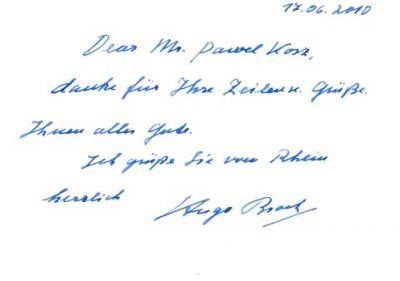 17.06.2010
Dear Mr. Pawel Korz,
danke für Ihre Zeilen u. Grüße.
Ihnen alles Gute.
Ich grüße Sie vom Rhein
herzlich Hugo Broch